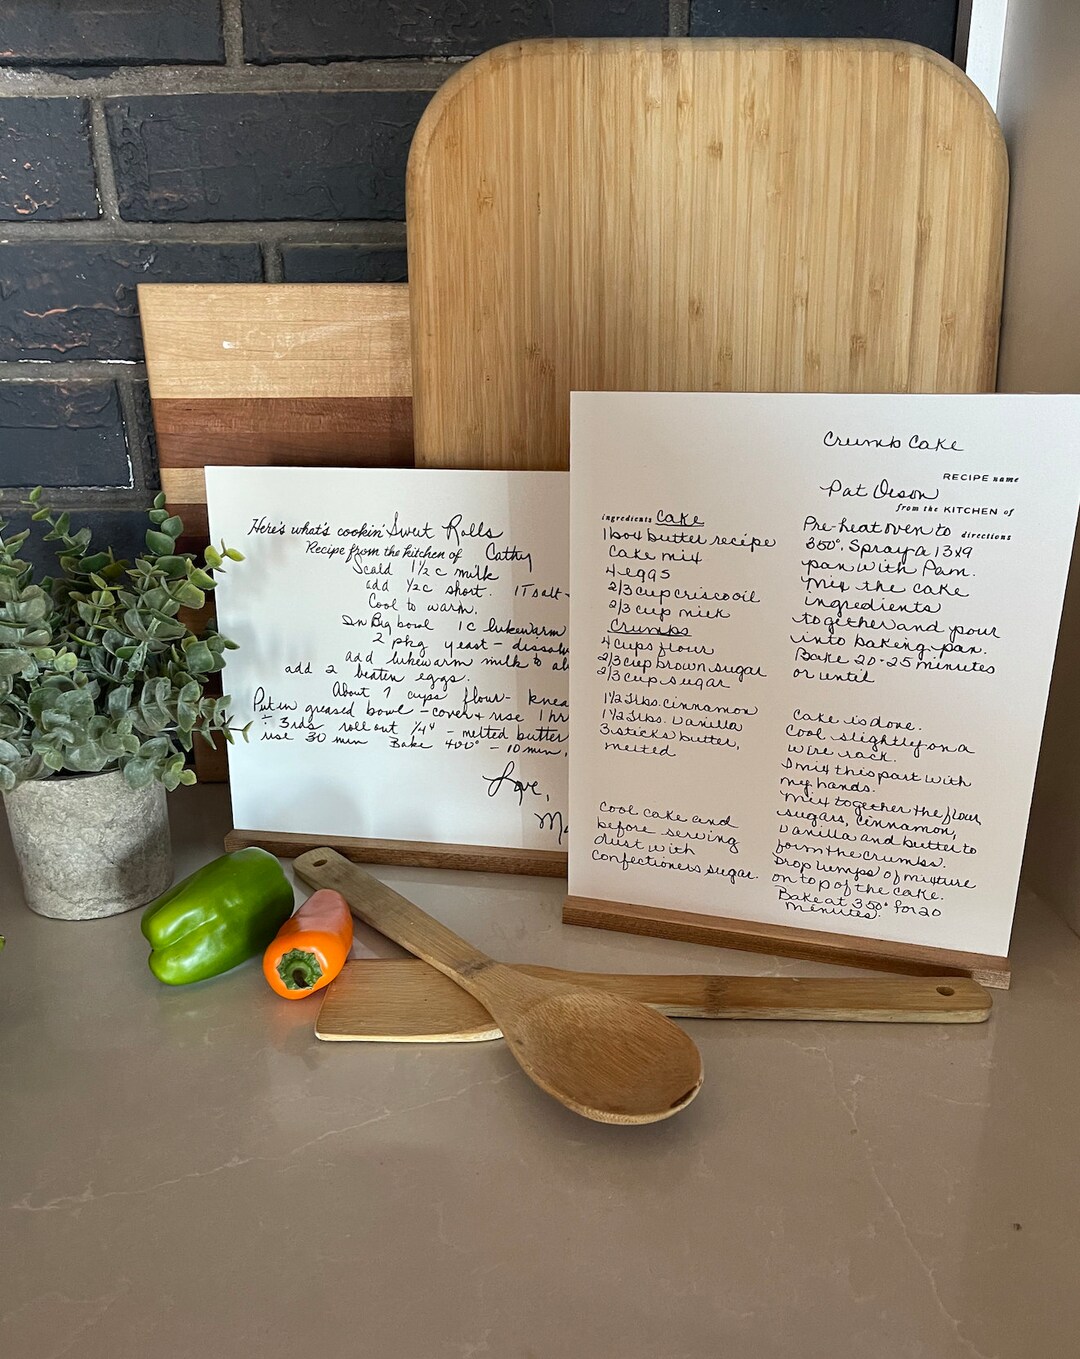 Here's what's cookin' Sweet Rolls
Recipe from the kitchen of Cathy
Scald 1½ c milk
add ½c short. 1T salt -
Cool to warm.
In Big bowl 1c lukewarm
2 pkg yeast - dissolv
add lukewarm milk to ab
add 2 beaten eggs.
About 7 cups flour - knea
Put in greased bowl - cover + rise 1 hr
÷ 3rds roll out ¼" - melted butter
rise 30 min Bake 400° - 10 min.
Love,
Ma
Crumb Cake
RECIPE name
Pat Olson
from the KITCHEN of
ingredients Cake
1 box butter recipe
Cake mix
4 eggs
2/3 cup crisco oil
2/3 cup milk
Crumbs
4 cups flour
2/3 cup brown sugar
2/3 cup sugar
1½ Tlbs. cinnamon
1½ Tlbs. vanilla
3 sticks butter,
melted
Cool cake and
before serving
dust with
confectioners sugar.
Pre-heat oven to directions
350°. Spray a 13x9
pan with Pam.
Mix the cake
ingredients
together and pour
into baking pan.
Bake 20-25 minutes
or until
Cake is done.
Cool slightly on a
wire rack.
I mix this part with
my hands.
Mix together the flour,
sugars, cinnamon,
vanilla and butter to
form the crumbs.
Drop lumps of mixture
on top of the cake.
Bake at 350° for 20
minutes.